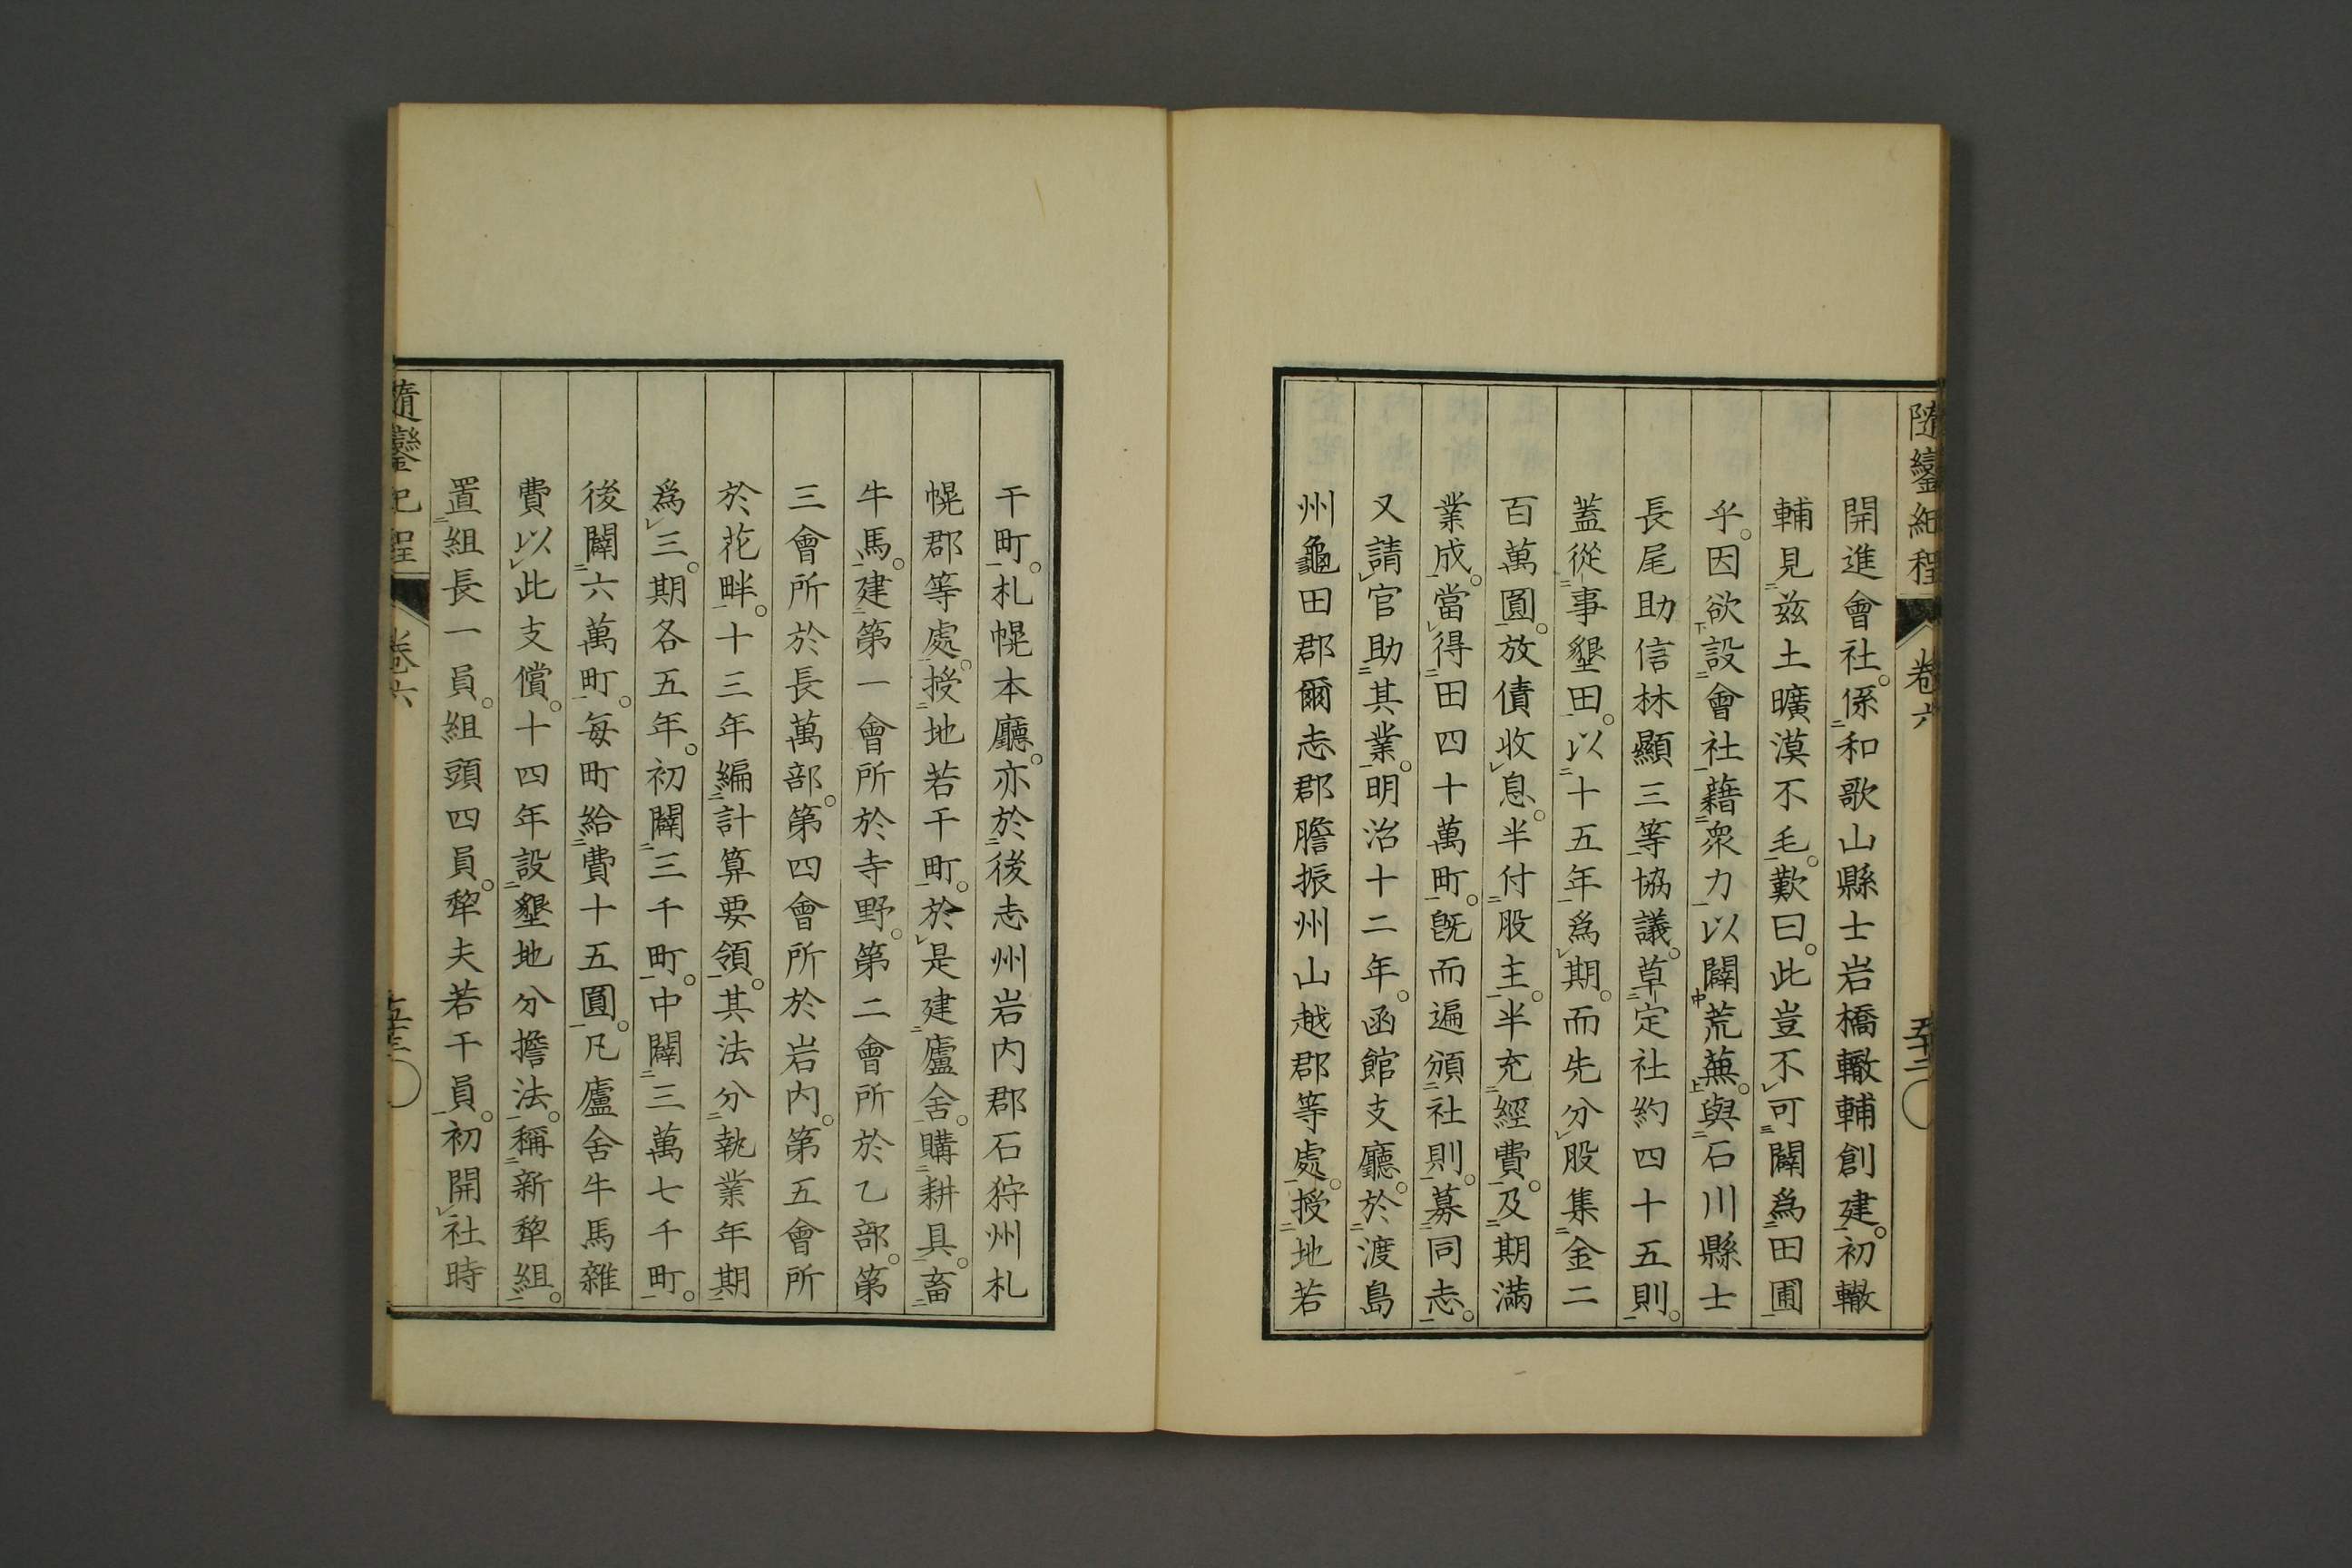 隨鑾紀程　卷六　五十二
開進會社。係和歌山縣士岩橋轍輔創建。初轍
輔見玆土曠漠不毛。歎曰。此豈不可闢爲田圃
乎。因欲設會社藉衆力以闢荒蕪。與石川縣士
長尾助信林顯三等協議。草定社約四十五則。
蓋從事墾田。以十五年爲期。而先分股集金二
百萬圓。放債收息。半付股主。半充經費。及期滿
業成。當得田四十萬町。既而遍頒社則。募同志。
又請官助其業。明治十二年。函館支廳。於渡島
州龜田郡爾志郡膽振州山越郡等處。授地若
干町。札幌本廳。亦於後志州岩内郡石狩州札
幌郡等處。授地若干町。於是建廬舍。購耕具。畜
牛馬。建第一會所於寺野。第二會所於乙部。第
三會所於長萬部。第四會所於岩内。第五會所
於花畔。十三年編計算要領。其法分執業年期
爲三。期各五年。初闢三千町。中闢三萬七千町。
後闢六萬町。每町給費十五圓。凡廬舍牛馬雜
費以此支償。十四年設墾地分擔法。稱新犂組。
置組長一員。組頭四員。犂夫若干員。初開社時
隨鑾紀程　卷六　五十三